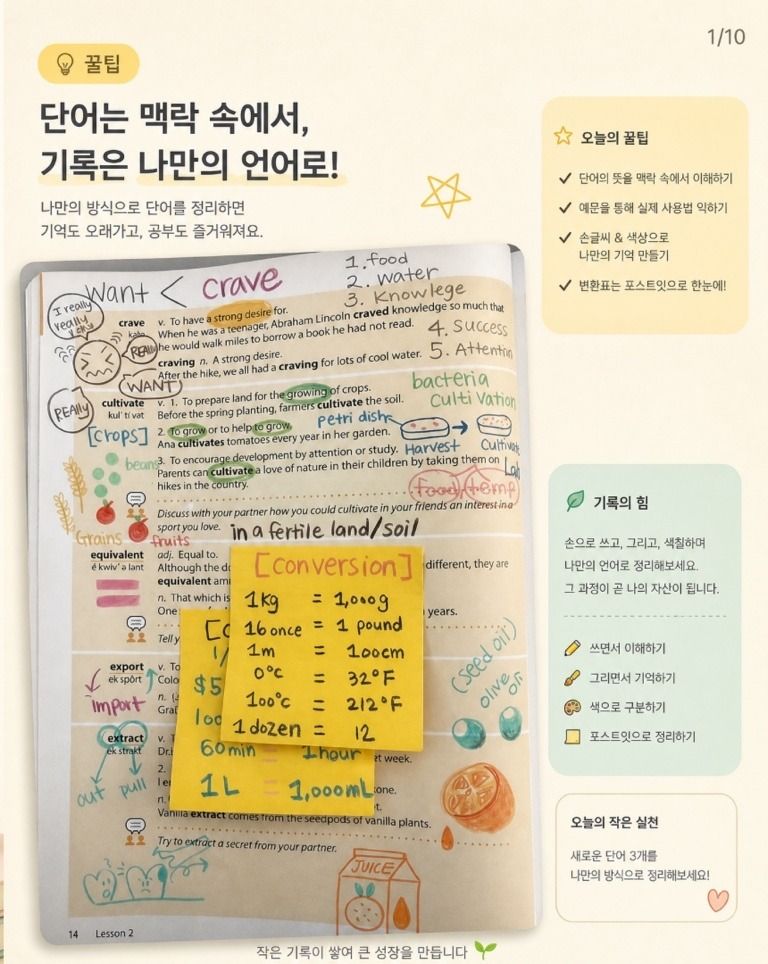 1/10
꿀팁
단어는 맥락 속에서,
기록은 나만의 언어로!
나만의 방식으로 단어를 정리하면
기억도 오래가고, 공부도 즐거워져요.
오늘의 꿀팁
단어의 뜻을 맥락 속에서 이해하기
예문을 통해 실제 사용법 익히기
손글씨 & 색상으로
나만의 기억 만들기
변환표는 포스트잇으로 한눈에!
Want < crave
1. food
2. water
3. Knowlege
4. Success
5. Attentin
I really
really
REAlly
WANT
REAlly
crave v. To have a strong desire for.
When he was a teenager, Abraham Lincoln craved knowledge so much that
he would walk miles to borrow a book he had not read.
craving n. A strong desire.
After the hike, we all had a craving for lots of cool water.
bacteria
Cultivation
cultivate v. 1. To prepare land for the growing of crops.
kul′ tí vat Before the spring planting, farmers cultivate the soil.
[crops] 2. To grow or to help to grow.
petri dish
Ana cultivates tomatoes every year in her garden.
Harvest
Cultivate
Lab
beans
3. To encourage development by attention or study.
Parents can cultivate a love of nature in their children by taking them on
hikes in the country.
food/temp
Discuss with your partner how you could cultivate in your friends an interest in a
sport you love.
Grains
fruits
in a fertile land/soil
equivalent adj. Equal to.
é kwiv′ ə lənt Although the do different, they are
equivalent am
n. That which is
One years.
Tell y
[conversion]
1kg = 1,000g
16 once = 1 pound
1m = 100cm
0°c = 32°F
100°c = 212°F
1 dozen = 12
60min = 1hour
1L = 1,000mL
$5
100
export v. To
ek spôrt Colo
import n.
(seed oil)
olive oil
extract v. T
ek strakt Dr. et week.
2.
I e cone.
out pull
n.
Vanilla extract comes from the seedpods of vanilla plants.
Try to extract a secret from your partner.
JUICE
14 Lesson 2
기록의 힘
손으로 쓰고, 그리고, 색칠하며
나만의 언어로 정리해보세요.
그 과정이 곧 나의 자산이 됩니다.
쓰면서 이해하기
그리면서 기억하기
색으로 구분하기
포스트잇으로 정리하기
오늘의 작은 실천
새로운 단어 3개를
나만의 방식으로 정리해보세요!
작은 기록이 쌓여 큰 성장을 만듭니다